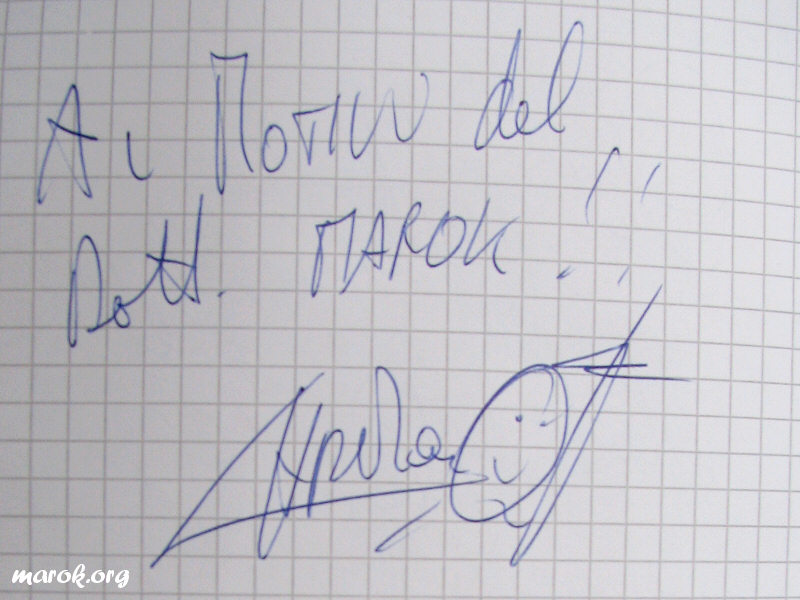 Ai Motivi del
Dott. MAROK!!
marok.org